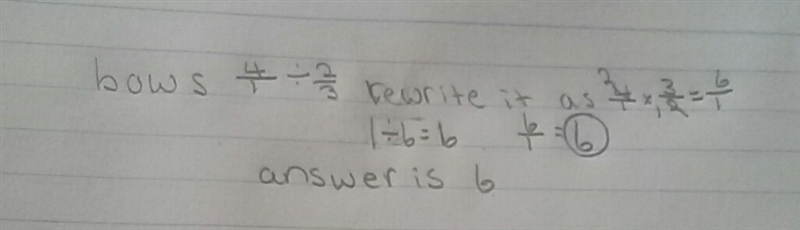 bows 4/1 ÷ 2/3 rewrite it as ²4/1 × 3/2₁ = 6/1
1÷6=6 6/1 = 6
answer is 6